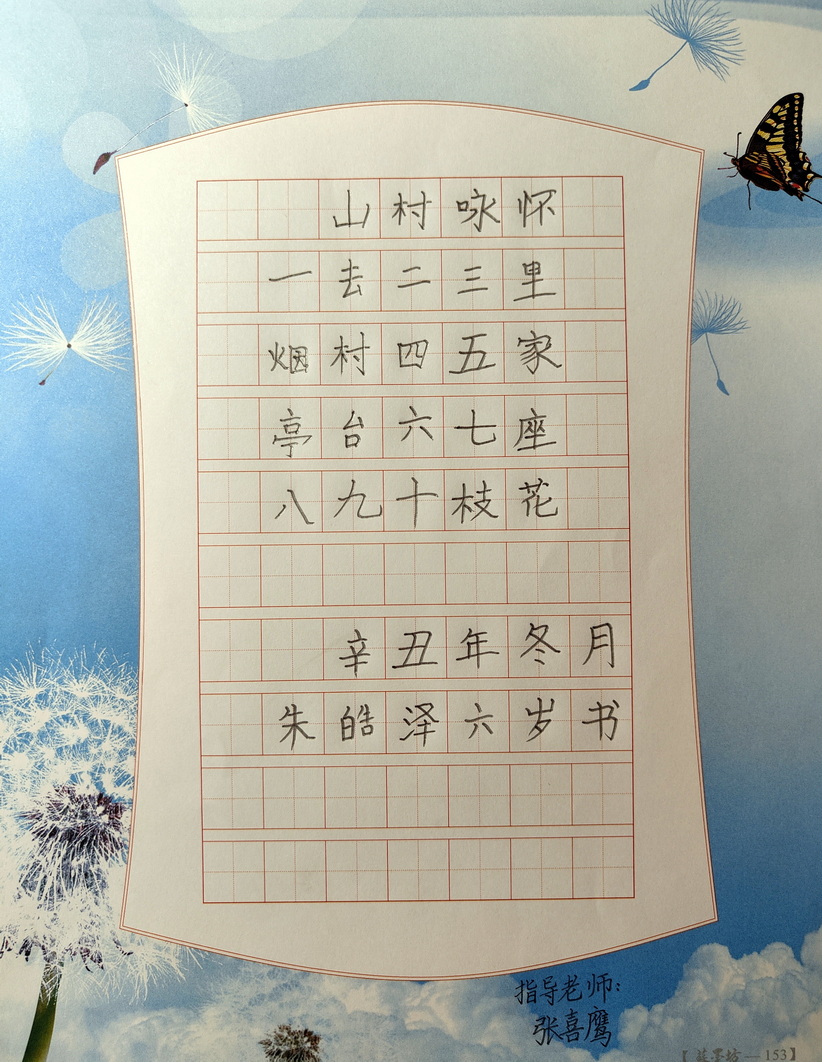 山村咏怀
一去二三里
烟村四五家
亭台六七座
八九十枝花
辛丑年冬月
朱皓泽六岁书
指导老师：
张喜鹰
【艺墨坊—153】